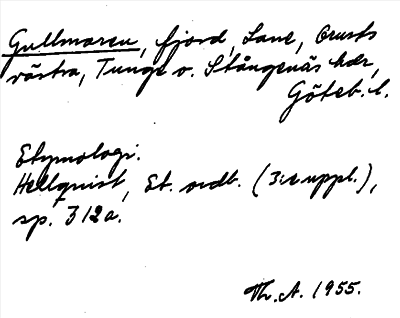 Gullmaren, fjord, Lane, Orusts
västra, Tunge o. Stångenäs hdr,
Göteb. l.
Etymologi.
Hellquist, Et. ordb. (3:e uppl.),
sp. 312a.
Th. A. 1955.